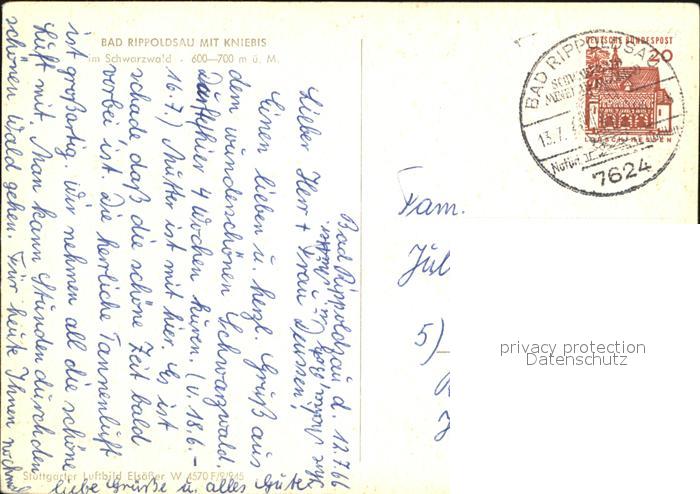 BAD RIPPOLDSAU MIT KNIEBIS
im Schwarzwald · 600—700 m ü. M.
Bad Rippoldsau d. 12.7.66
Lieber Herr + Frau Deussen!
Einen lieben u. herzl. Gruß aus
dem wunderschönen Schwarzwald.
Durfte hier 4 Wochen kuren. (v. 18.6. –
16.7.) Mutter ist mit hier. Es ist
schade daß die schöne Zeit bald
vorbei ist. Die herrliche Tannenluft
ist großartig. Wir nehmen all die schöne
Luft mit. Man kann Stunden durch den
schönen Wald gehen. Für heute Ihnen nochmal
liebe Grüße u. alles Gute
Ihre
u. Mutti
DEUTSCHE BUNDESPOST
20
LORSCH/HESSEN
BAD RIPPOLDSAU
13.7.
7624
Fam.
Jül
5)
privacy protection
Datenschutz
Stuttgarter Luftbild Elsäßer W 4570 F/9/945